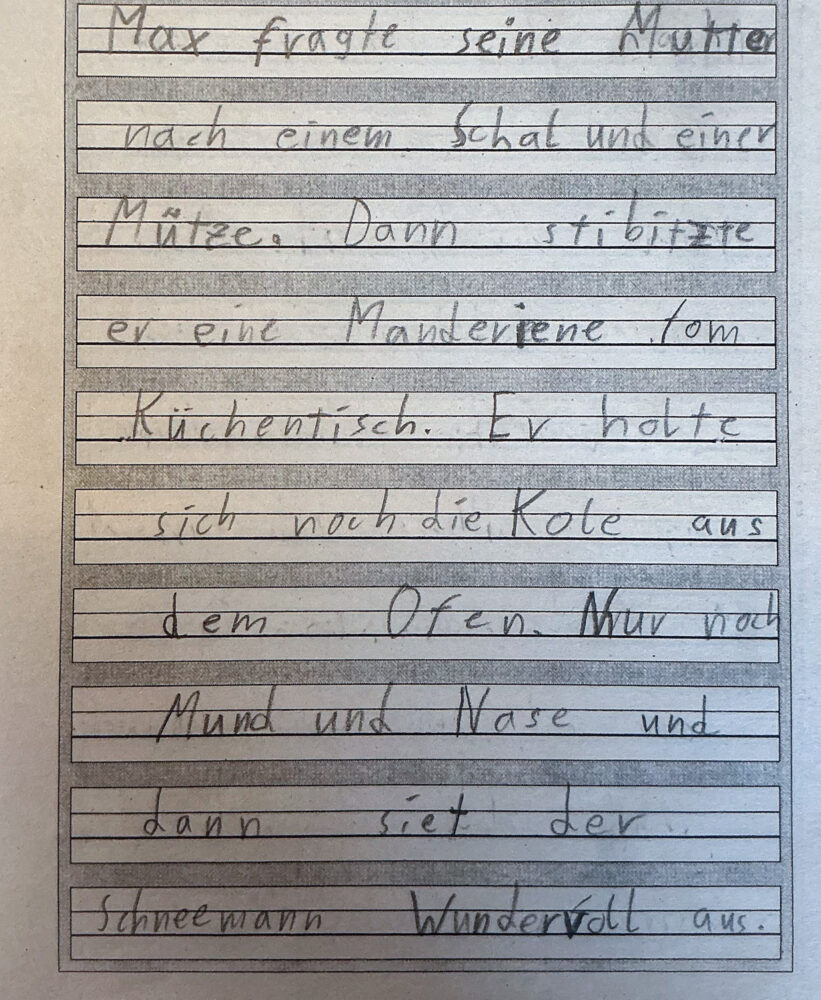 Max fragte seine Mutter
nach einem Schal und einer
Mütze. Dann stibitzte
er eine Manderiene fom
Küchentisch. Er holte
sich noch die Kole aus
dem Ofen. Nur noch
Mund und Nase und
dann siet der
Schneemann Wundervoll aus.